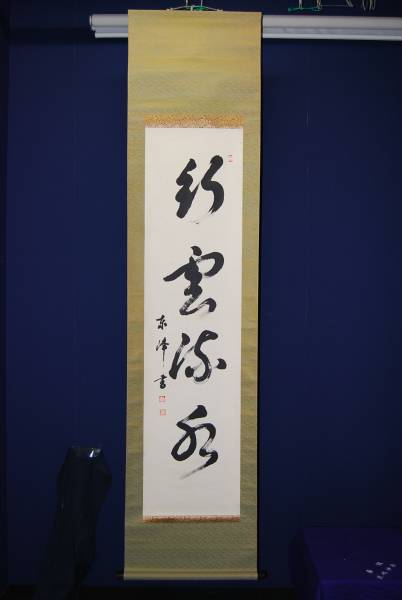 行雲流水
東澤書